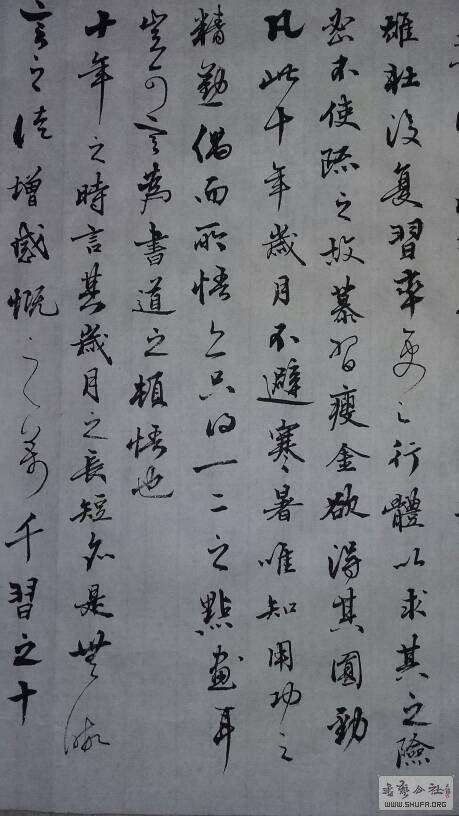 雄壯後复習率更之行體以求其之險
密不使踈之故慕習瘦金欲得其圓勁
凡此十年歲月不避寒暑唯知用功之
精勤偶而所悟亦只得一二之點畫耳
豈可言為書道之頓悟也
十年之時言其歲月之長短亦是無
言之徒增感慨千習之十
書藝公社
WWW.SHUFA.ORG